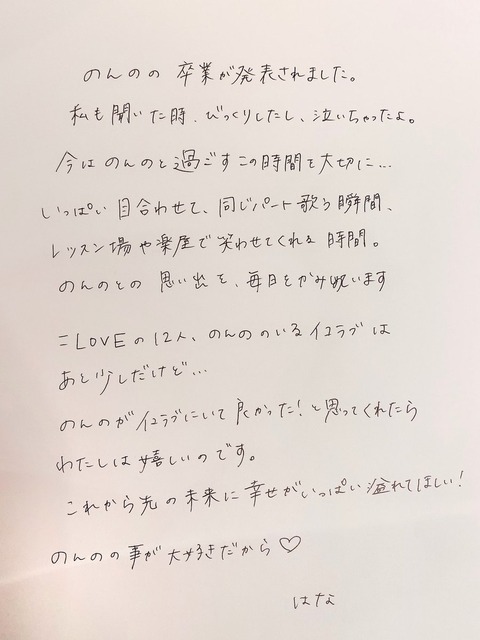 のんのの 卒業が発表されました。
私も聞いた時、びっくりしたし、泣いちゃったよ。
今はのんのと過ごすこの時間を大切に…
いっぱい目合わせて、同じパート歌う瞬間、
レッスン場や楽屋で笑わせてくれる時間。
のんのとの思い出を、毎日をかみ
=LOVEの12人、のんののいるイコラブは
あと少しだけど…
のんのがイコラブにいて良かった！と思ってくれたら
わたしは嬉しいのです。
これから先の未来に幸せがいっぱい溢れてほしい！
のんのの事が大好きだから♡
はな